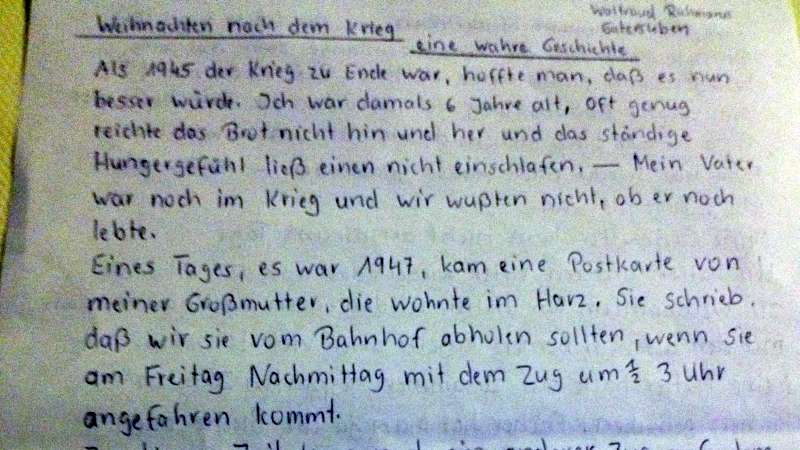 Weihnachten nach dem Krieg
Waltraud Ruhmann
Gatersleben
eine wahre Geschichte
Als 1945 der Krieg zu Ende war, hoffte man, daß es nun
besser würde. Ich war damals 6 Jahre alt, oft genug
reichte das Brot nicht hin und her und das ständige
Hungergefühl ließ einen nicht einschlafen. — Mein Vater
war noch im Krieg und wir wußten nicht, ob er noch
lebte.
Eines Tages, es war 1947, kam eine Postkarte von
meiner Großmutter, die wohnte im Harz. Sie schrieb,
daß wir sie vom Bahnhof abholen sollten, wenn sie
am Freitag Nachmittag mit dem Zug um ½ 3 Uhr
angefahren kommt.